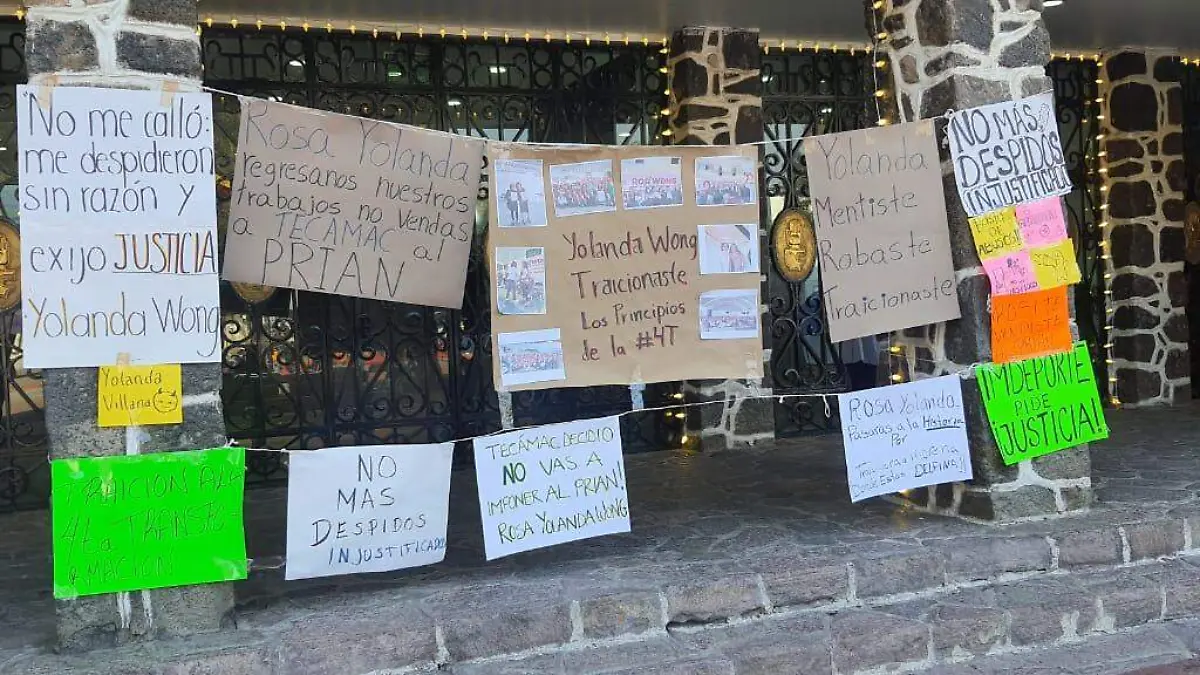 "No me calló:
me despidieron
sin razón y
exijo JUSTICIA
Yolanda Wong
Yolanda
Villana
TRAICION A LA
4ta TRANSFOR-
MACION
Rosa Yolanda
regresanos nuestros
trabajos no vendas
a TECAMAC al
PRIAN
NO
MAS
DESPIDOS
INJUSTIFICADOS
Yolanda Wong
Traicionaste
Los Principios
de la #4T
TECÁMAC DECIDIO
NO VAS A
IMPONER AL PRIAN!
ROSA YOLANDA WONG
Yolanda
Mentiste
Robaste
Traicionaste
ROSA Yolanda
Pasaras a la Historia
Por
DELFINA
NO MÁS
DESPIDOS
INJUSTIFICADOS
IMDEPORTE
PIDE
¡JUSTICIA!